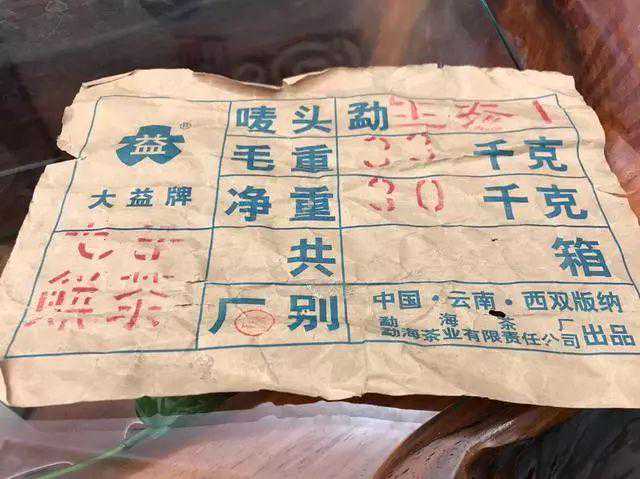 益®
大益牌
七子
餅茶
唛头 勐生 1
毛重 33 千克
净重 30 千克
共 箱
厂别
中国·云南·西双版纳
勐海茶厂
勐海茶业有限责任公司 出品